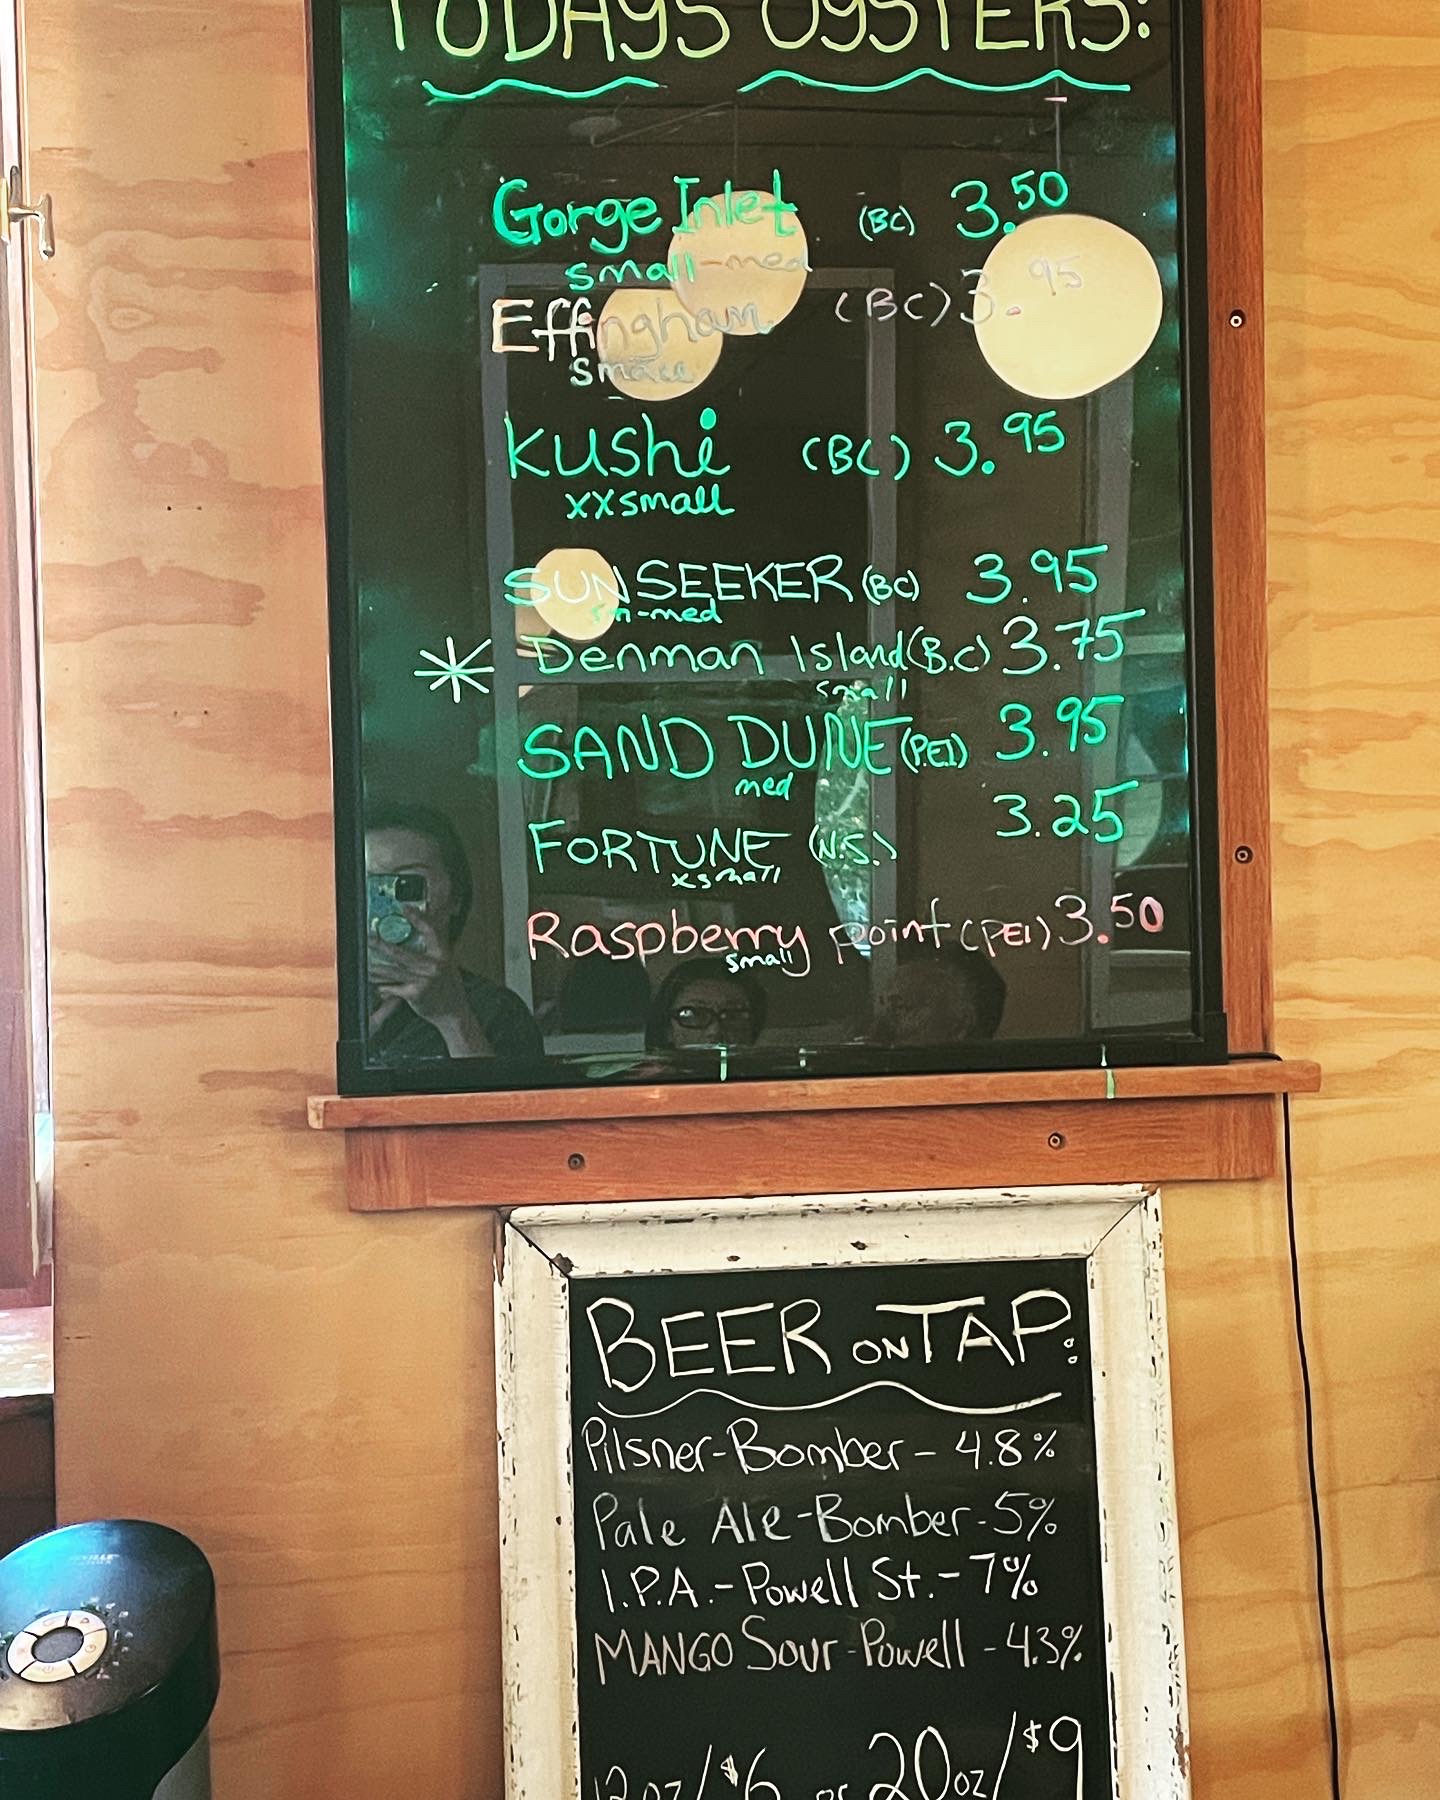 TODAYS OYSTERS:
Gorge Inlet (BC) 3.50
small-med
Effingham (BC) 3.95
small
Kushi (BC) 3.95
xxsmall
SUNSEEKER (BC) 3.95
sm-med
Denman Island (B.C) 3.75
small
SAND DUNE (P.E.I) 3.95
med
FORTUNE (N.S.) 3.25
xsmall
Raspberry point (PEI) 3.50
small
BEER ON TAP:
Pilsner-Bomber - 4.8%
Pale Ale-Bomber-5%
I.P.A.-Powell St.-7%
MANGO Sour-Powell - 4.3%
12oz/$6 or 20oz/$9